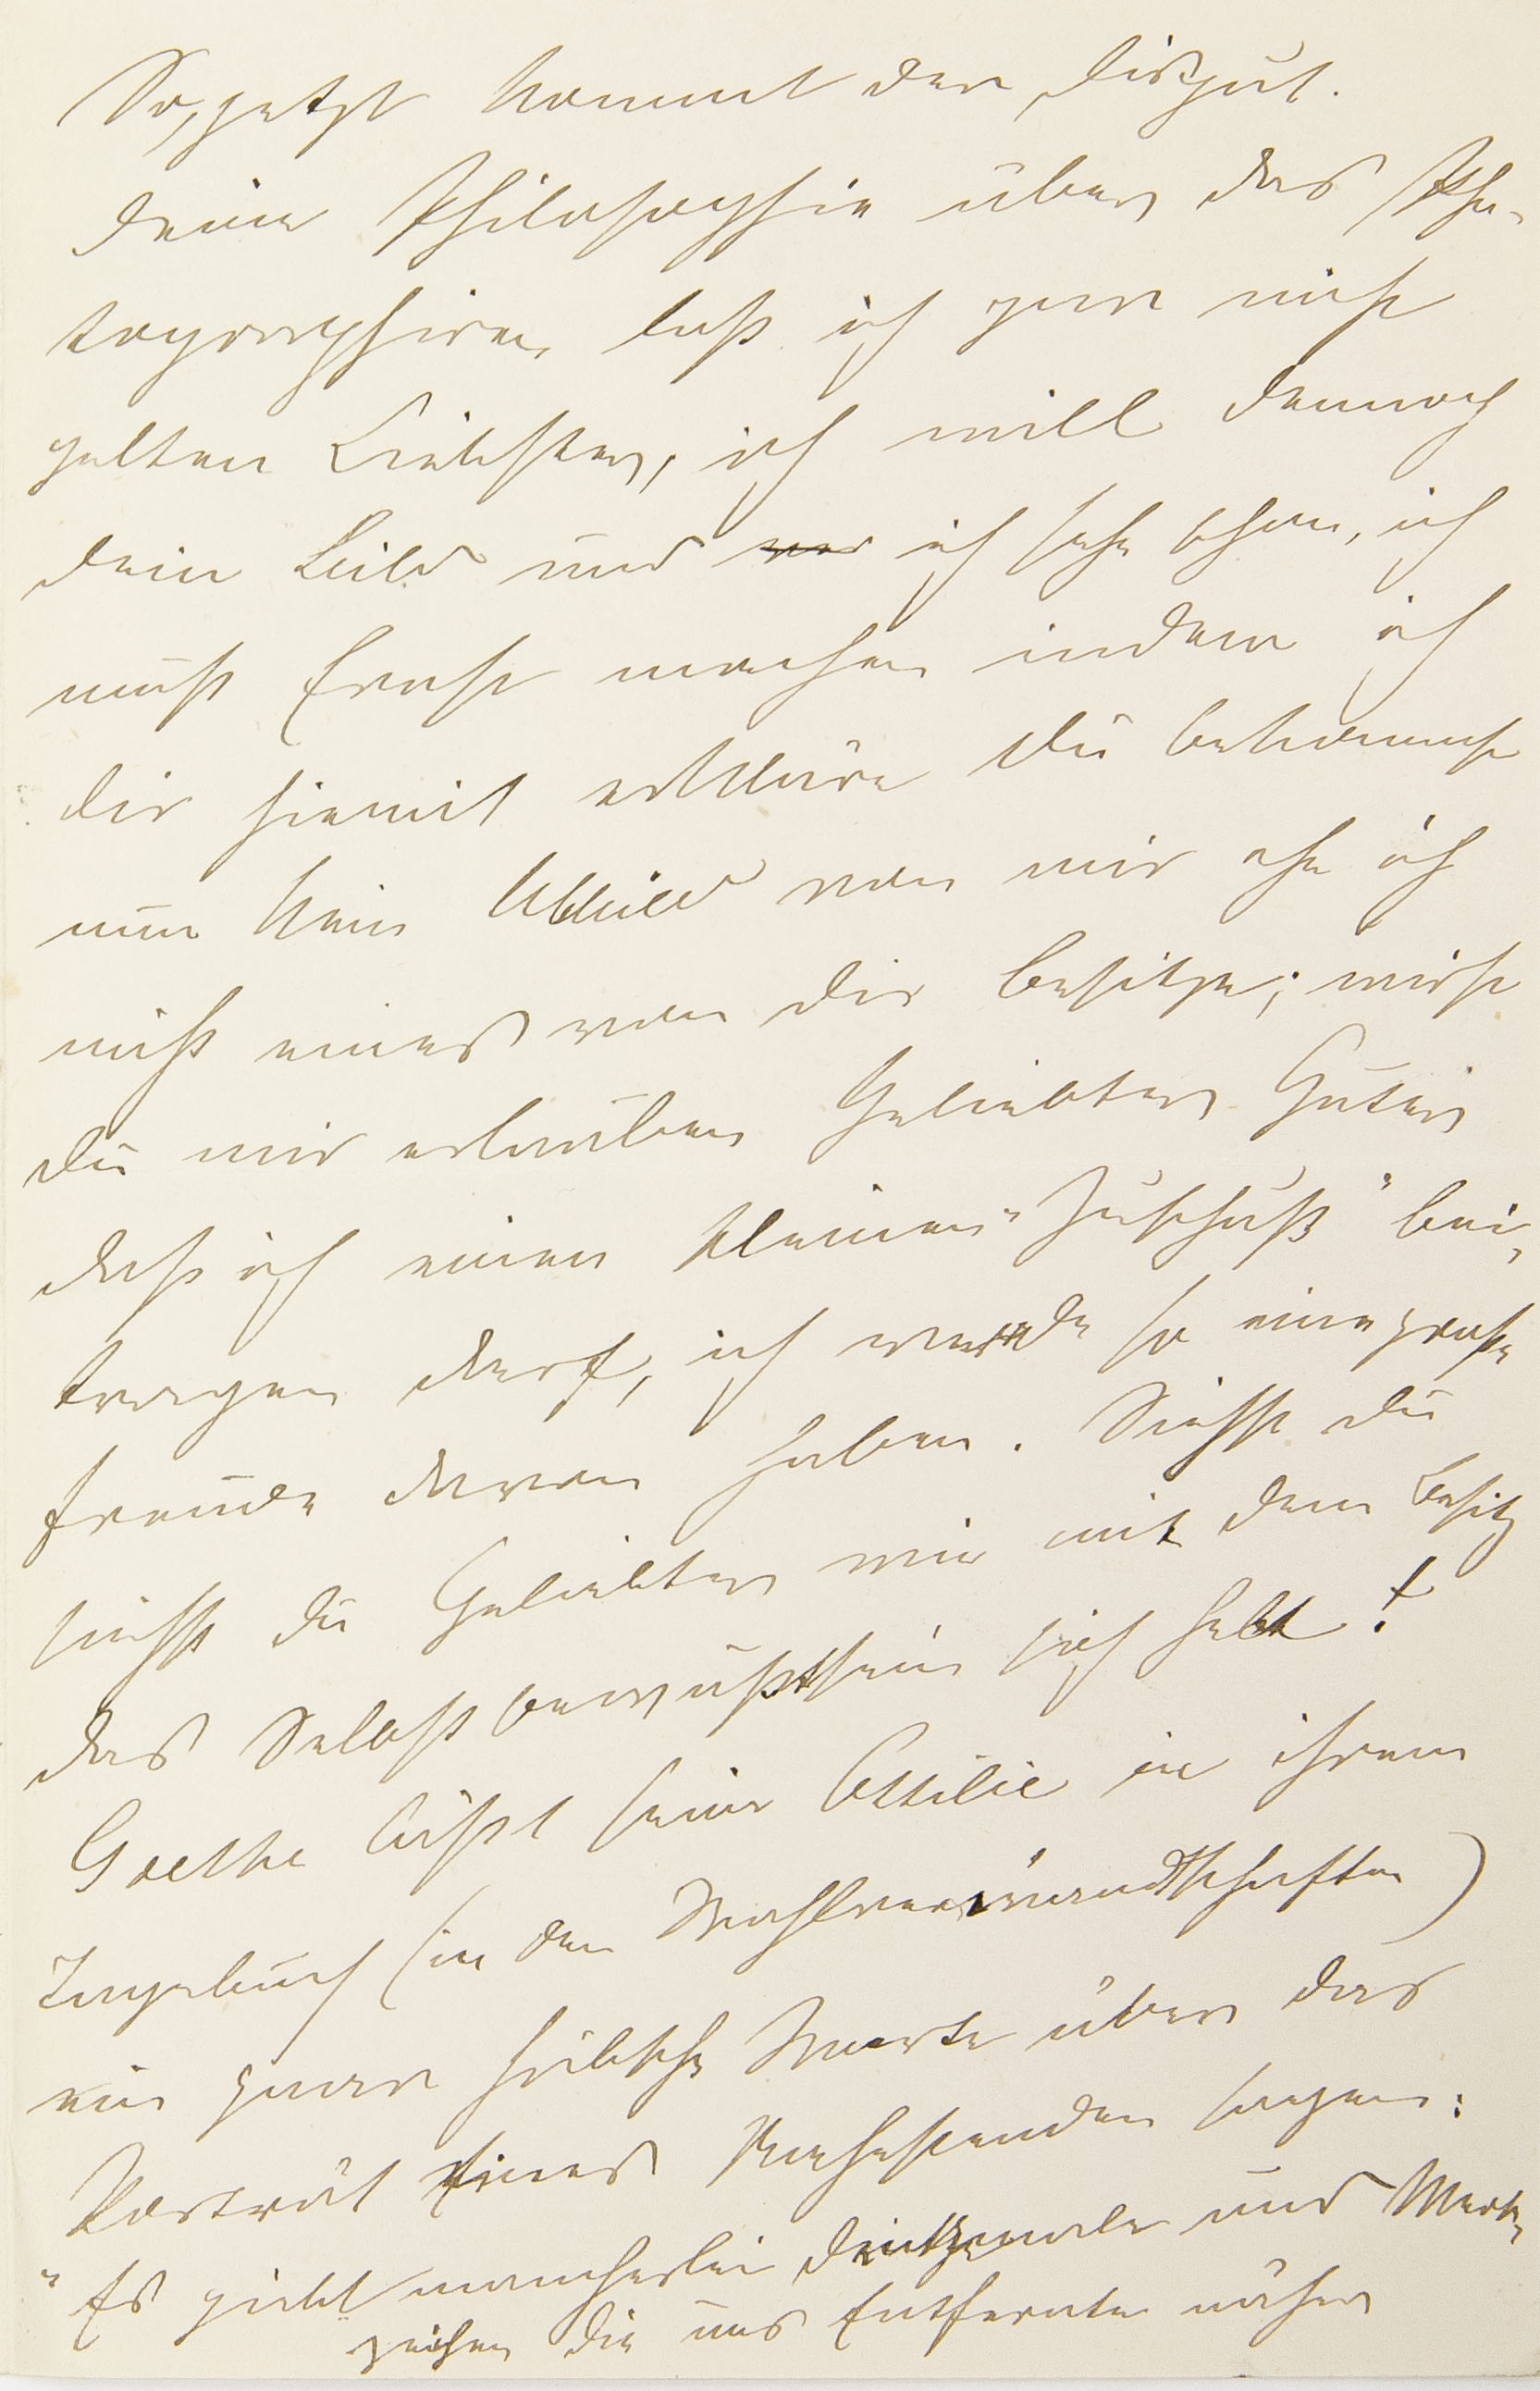 So, jetzt kommt der Disput.
Deine Philosophie über das Pho-
tographiren laß ich gar nicht
gelten Liebster, ich will dennoch
dein Bild und ich sehe schon, ich
muß Ernst machen indem ich
dir hiemit erkläre du bekommst
nun kein Abbild von mir ehe ich
nicht eines von dir besitze; wirst
du mir erlauben Geliebter Guter
daß ich einen kleinen "Zuschuß" bei-
tragen darf, ich werde so eine große
Freude davon haben. Siehst du
siehst du Geliebter wie mit dem Besitz
das Selbstbewußtsein sich hebt!
Goethe läßt seine Ottilie in ihrem
Tagebuch (in den Wahlverwandtschaften)
ein paar hübsche Worte über das
Porträt eines Nahestenden sagen:
"Es giebt mancherlei Denkmale und Merk-
zeichen die uns Entfernte näher